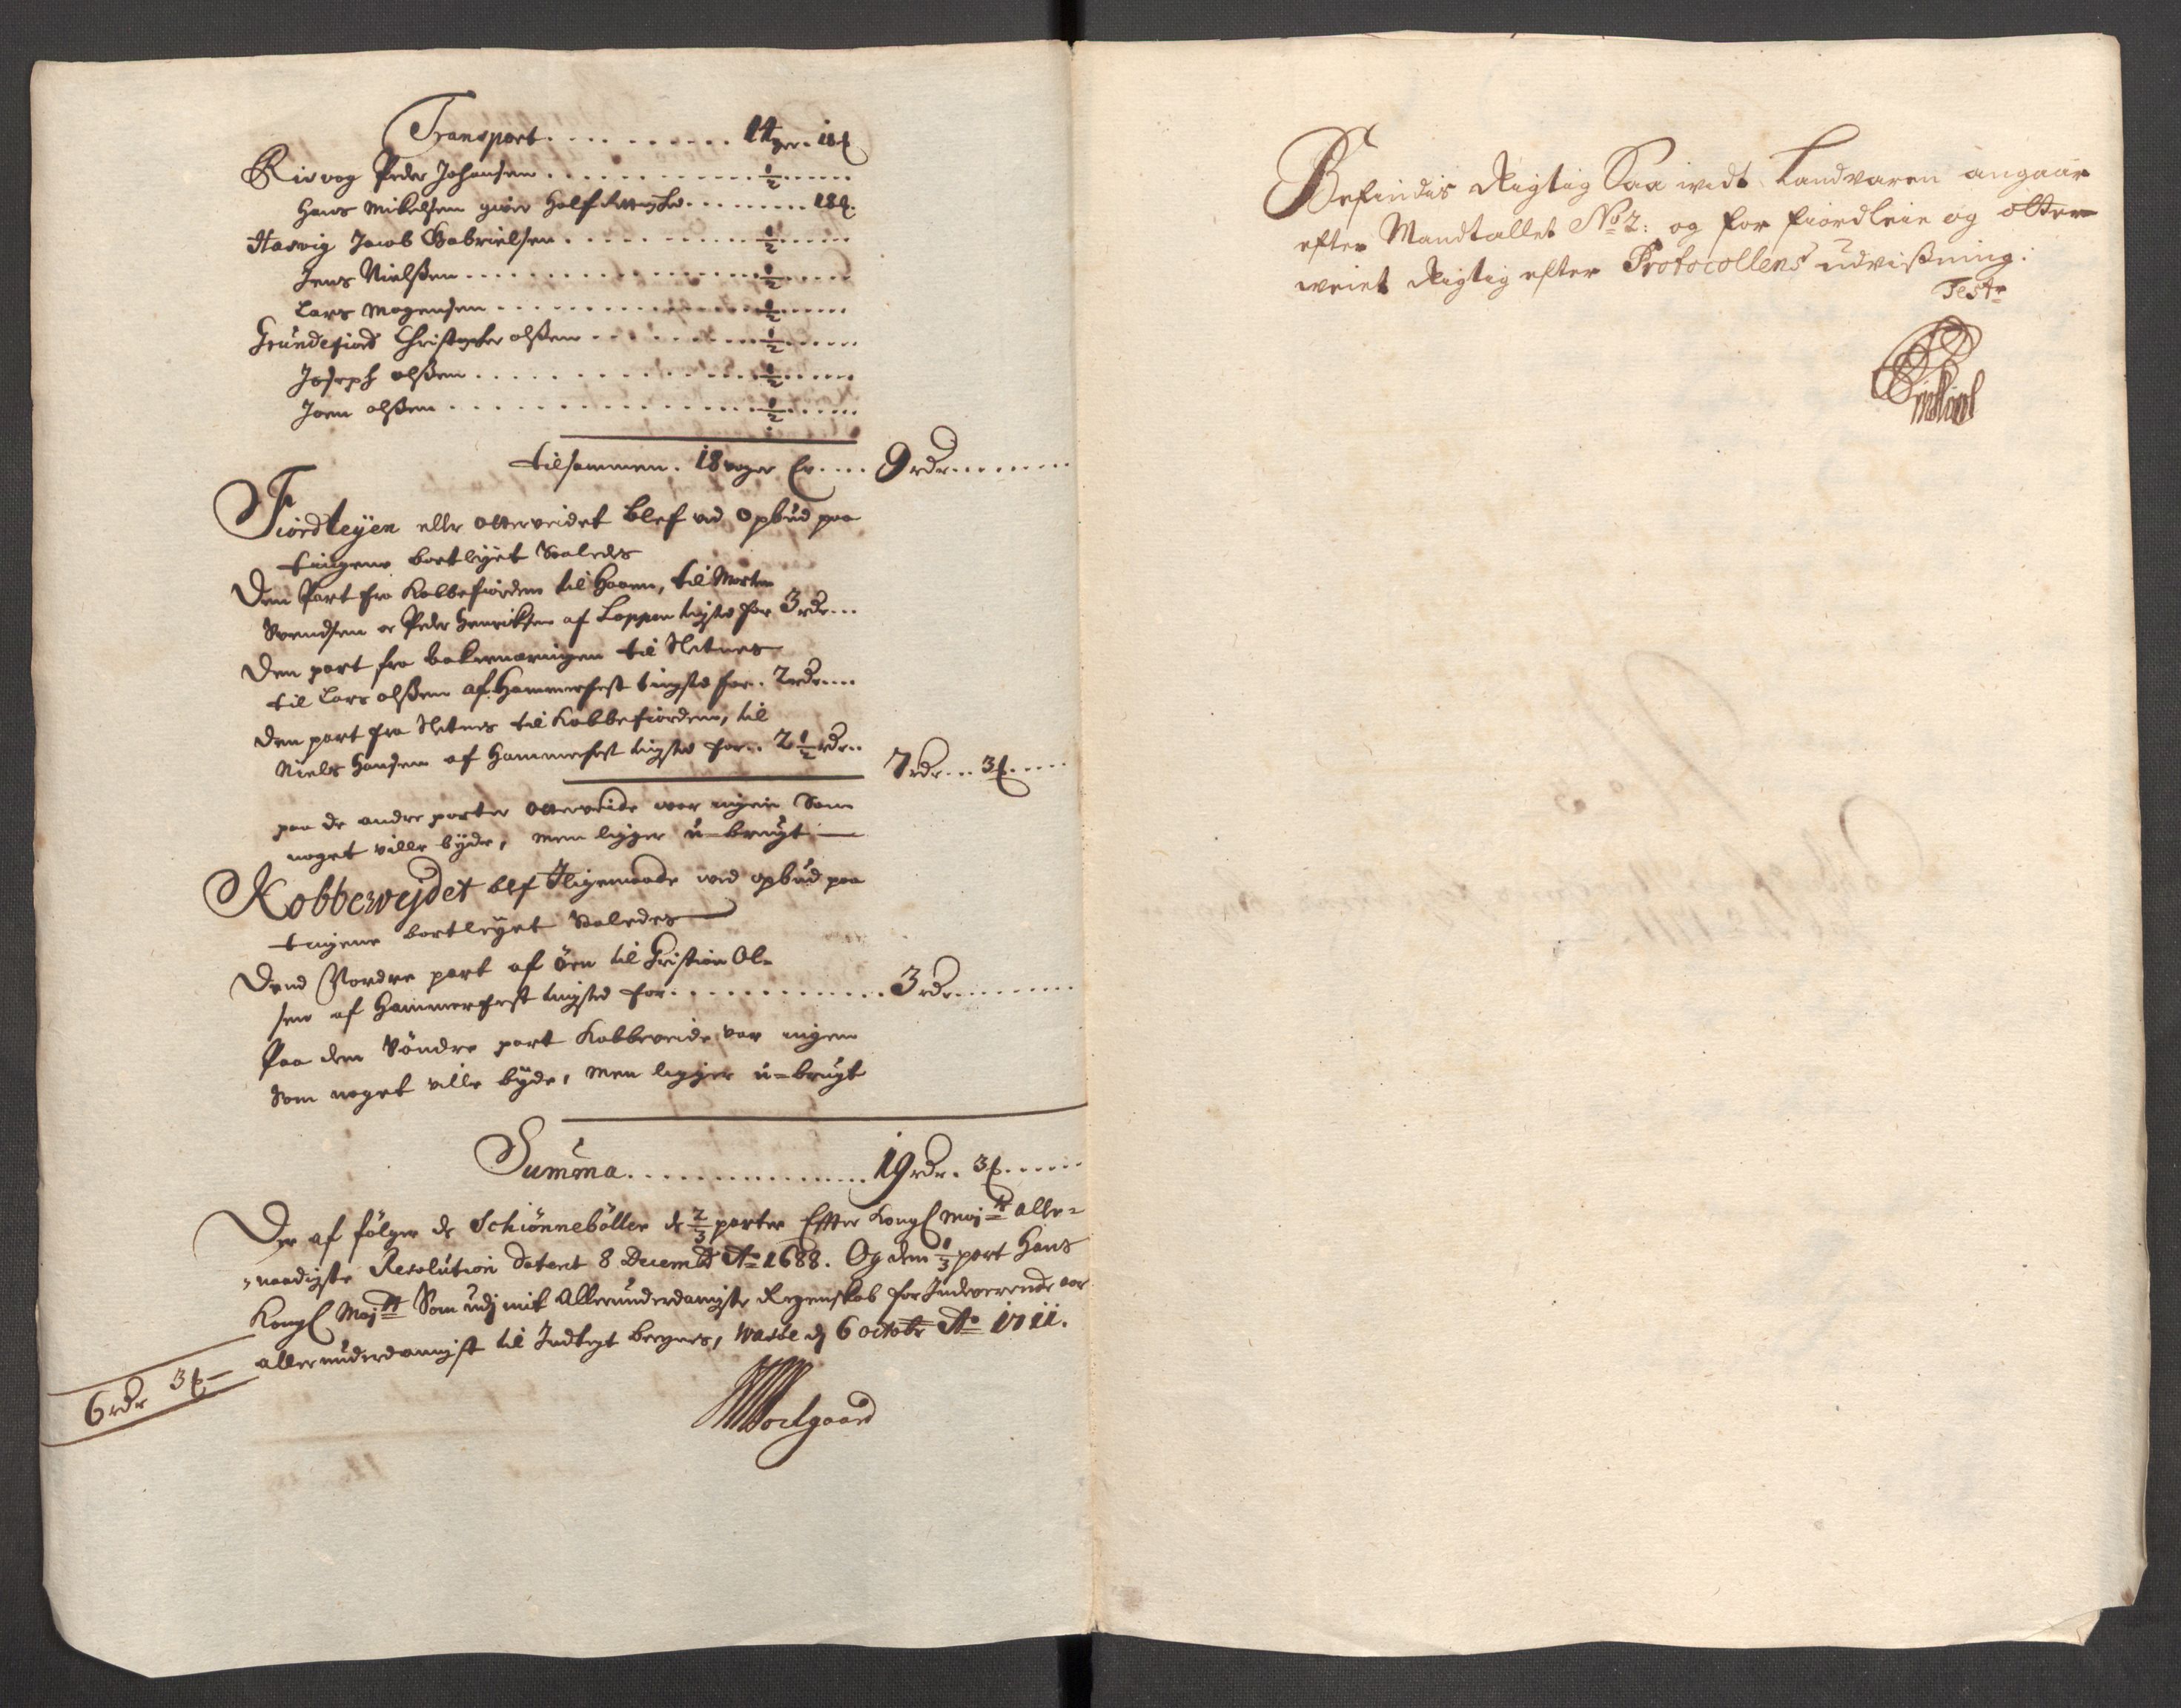 Transport . . . . . . . . . . 14 voger. 18 ℔
Risvog Peder Johansen . . . . . . . . . . . ½ . . . . .
Hans Mikelsen giver half . . . . . . . . 18 ℔.
Hasvig Jacob Gabrielsen . . . . . . . . . ½ . . . . .
Jens Nielssen . . . . . . . . . . . . . . . ½ . . . . .
Lars Mogensen . . . . . . . . . . . . . ½ . . . . .
Grundefiord Christopher olssen . . . . . . . . . ½ . . . . .
Joseph olssen . . . . . . . . . . . . . . ½ . . . . .
Joen olssen . . . . . . . . . . . . . . . ½ . . . . .
tilsammen. 18 voger Er . . . . 9 rdr. . . . . . .
Fiordleyen eller otterveidet blef ved Opbud paa
tingene bortleyet Saaledes
Den Part fra Kobbefiorden til Haaen, til Morten
Svendsen oc Peder Henriksen af Loppen tingsted for 3 rdr. . .
Den part fra bakernæringen til Sletnes
til Lars olssen af Hammerfest tingsted for . . 2 rdr. . . .
Den part fra Sletnes til Kobbefiorden, til
Niels Hansen af Hammerfest tingsted for . . 2 ½ rdr. .
7 rdr. . . 3 ß. . . . .
paa de andre parter otterveide var ingen Som
noget ville byde, men ligger u-brugt
Kobbevejdet blef Iligemaade ved opbud paa
tingene bortleyet Saaledes
Dend Nordre part af öen til Christian Ol-
sen af Hammerfest tingsted for . . . . . . . . . . . . 3 rdr. . . . . . . .
Paa den Söndre part Kobbeveide var ingen
Som noget ville byde, men ligger u-brugt
Summa . . . . . . . . . . . . . . . 19 rdr. 3 ß. . . . . .
Der af fölger de Schiönneböller de ⅔ parter Efter Kongl May:ts Aller-
naadigste Resolution Daterit 8 Decembr Ao 1688. Og den ⅓ part Hans
Kongl May:tt Som udj mit Allerunderdanigste Regenskab for Indeverende aar
allerunderdanigst til Indtegt beregnes, Wasöe dj 6 octobr Ao 1711.
6 rdr 3 ß
Soelgaard
Befindis Rigtig Saa vidt Landvaren angaar
efter Mandtallet No 2: og for fiordleie og otter
weiet Rigtig efter Protocollens udvissning.
Teste